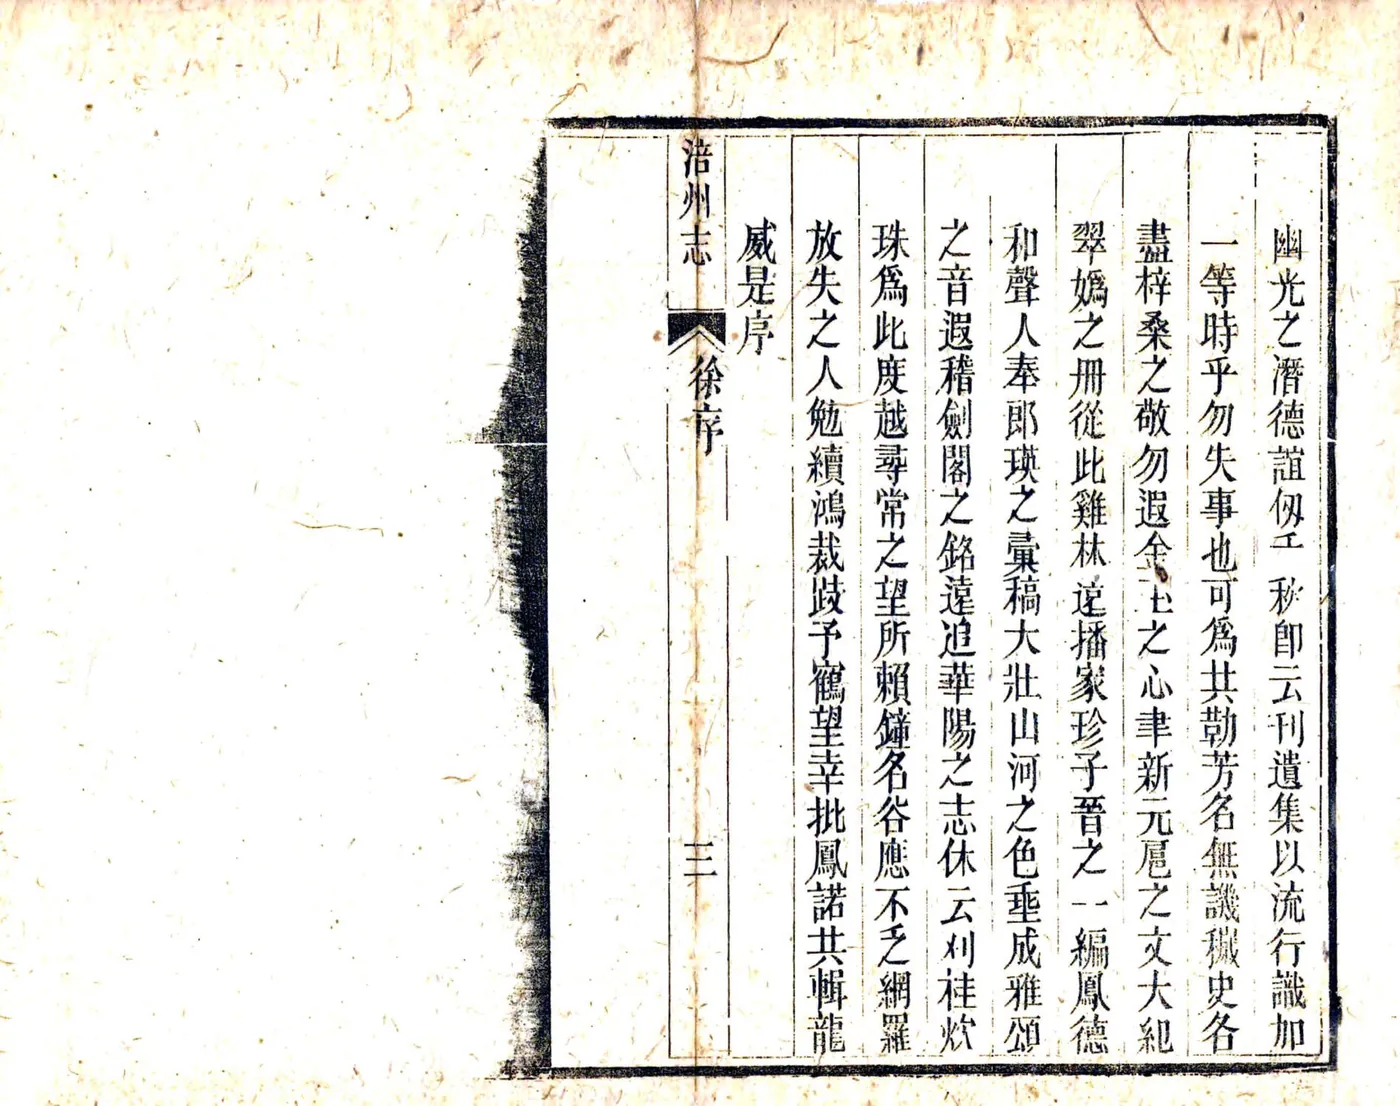 幽光之潛德誼仞千秋卽云刊遺集以流行識加
一等時乎勿失事也可爲共勒芳名無譏穢史各
盡梓桑之敬勿遐金玉之心聿新元扈之文大紀
翠嬀之冊從此雞林遠播家珍子晉之一編鳳德
和聲人奉郎瑛之彙稿大壯山河之色垂成雅頌
之音遐稽劍閣之銘遠追華陽之志休云刈桂炊
珠爲此度越尋常之望所賴鐘名谷應不乏網羅
放失之人勉續鴻裁跂予鶴望幸批鳳諾共輯龍
威是序
涪州志
徐序
三